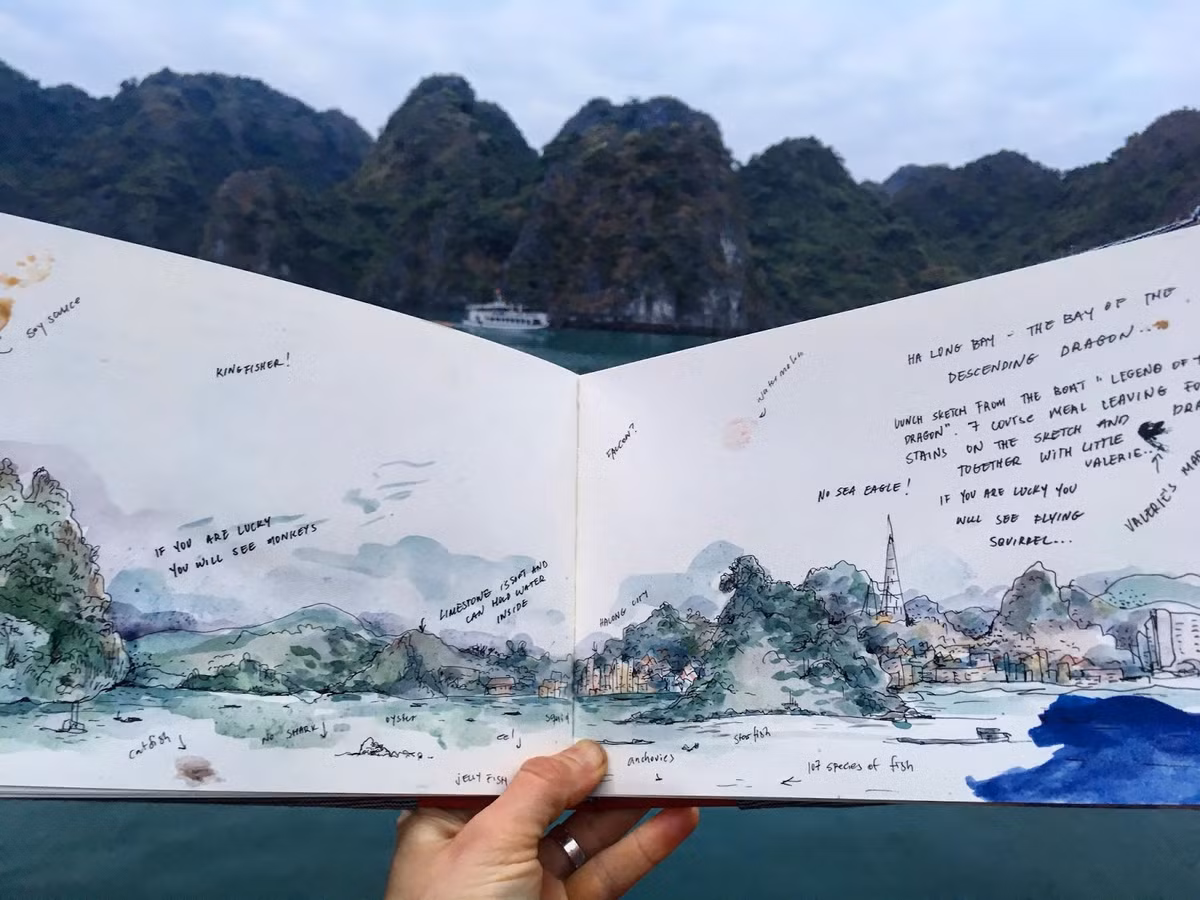 soy sauce
KINGFISHER!
IF YOU ARE LUCKY
YOU WILL SEE MONKEYS
LIMESTONE IS SOFT AND
CAN HOLD WATER
INSIDE
catfish
NO SHARK
oyster
eel
squid
JELLY FISH
watermelon
FALCON?
HALONG CITY
NO SEA EAGLE!
HA LONG BAY - THE BAY OF THE
DESCENDING DRAGON...
LUNCH SKETCH FROM THE BOAT "LEGEND OF
DRAGON". 7 COURSE MEAL LEAVING
STAINS ON THE SKETCH AND
TOGETHER WITH LITTLE
VALERIE...
IF YOU ARE LUCKY YOU
WILL SEE FLYING
SQUIRREL...
VALERIE'S
anchovies
starfish
107 species of fish